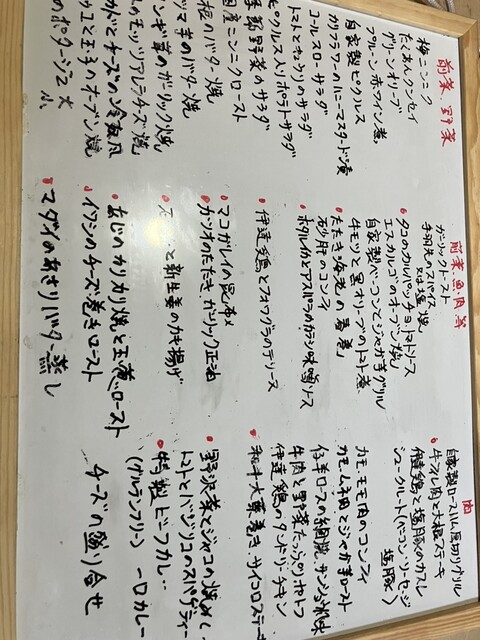 前菜、野菜
梅ニンニク
たくあんクンセイ
グリーンオリーブ
プルーン赤ワイン煮
自家製ピクルス
カリフラワーのハニーマスタード漬
コールスローサラダ
トマトとキュウリのサラダ
ピクルス入りポテトサラダ
季節野菜のサラダ
国産ニンニクロースト
のバター焼
ツマ芋のバター焼
ンギ茸のガーリック焼
のモッツァレラチーズ焼
とチーズの冷製
と玉子のオーブン焼
のポタージュ 大 小
前菜 魚・肉 等
ガーリックトースト
手羽先のスパイス又は塩焼
タコのカルパッチョトマトソース
エスカルゴのオーブン焼
自家製ベーコンとジャガ芋グリル
牛モツと黒オリーブのトマト煮
たたき海老の
砂肝のコンフィ
ホタルイカとアスパラのカラシ味噌ソース
伊達鶏とフォワグラのテリーヌ
マコガレイの昆布〆
カツオのたたきガーリック正油
と新生姜のかき揚げ
あじのカリカリ焼と玉葱ロースト
イワシのチーズ巻きロースト
マダイのあさりバター蒸し
肉
自家製ロースハム厚切りグリル
牛ヒレ肉と大根ステーキ
伊達鶏と塩豚のカスレ
シュークルート(ベーコン・ソーセージ 塩豚)
カモモモ肉のコンフィ
カモムネ肉とジャガ芋ロースト
仔羊ロースの網焼、サンショ風味
牛肉と野菜たっぷりポトフ
伊達鶏のタンドリーチキン
和牛大葉巻き サイコロステー
野沢菜とジャコの焼めし
トマトとバジリコのスパゲティー
特製ビーフカレー
(グルテンフリー) 一口カレー
チーズの盛り合せ